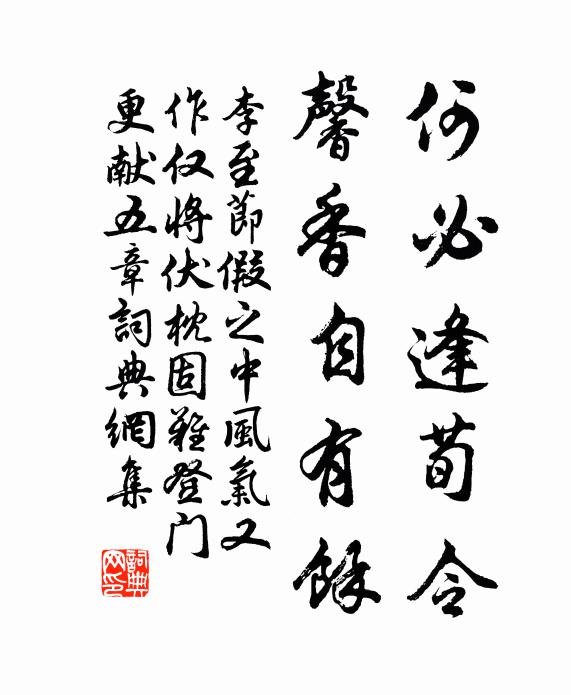 何必逢荀令
馨香自有餘
李至節假之中風氣又
作仅將伏枕固難登门
更献五章詞典網集
詞典网印